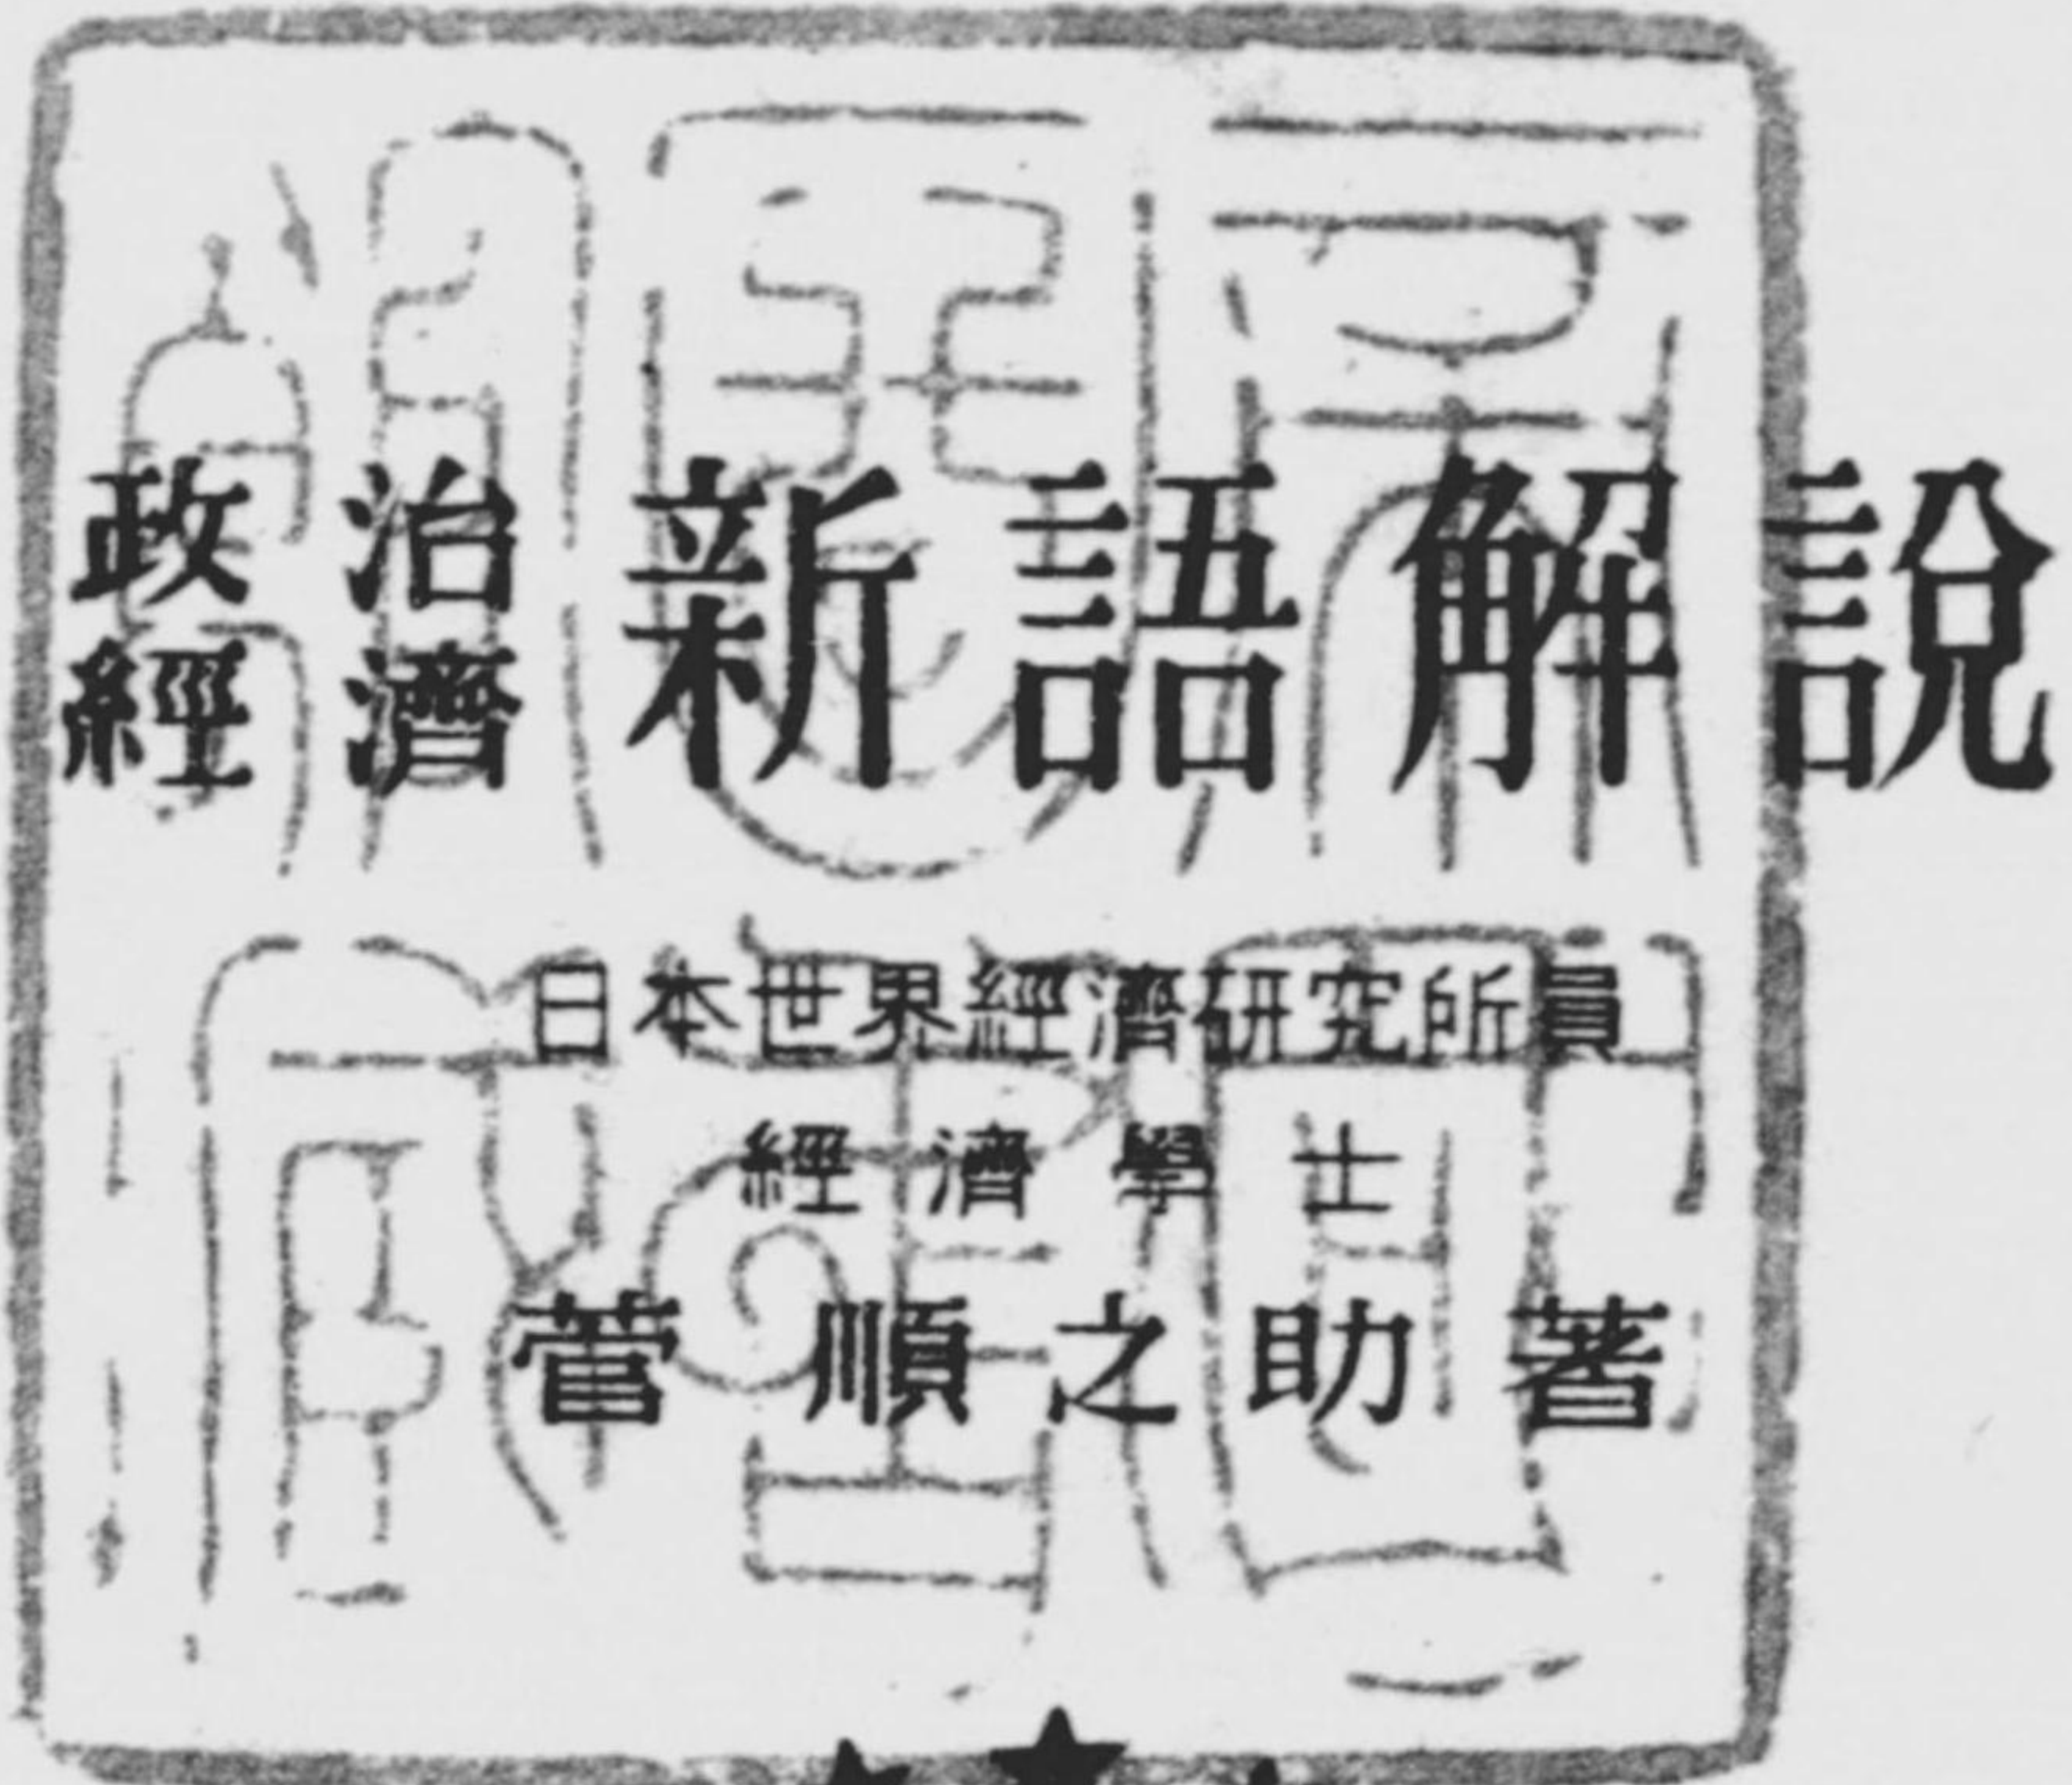 政治
經濟
新語解說
日本世界經濟研究所員
經濟學士
菅順之助著